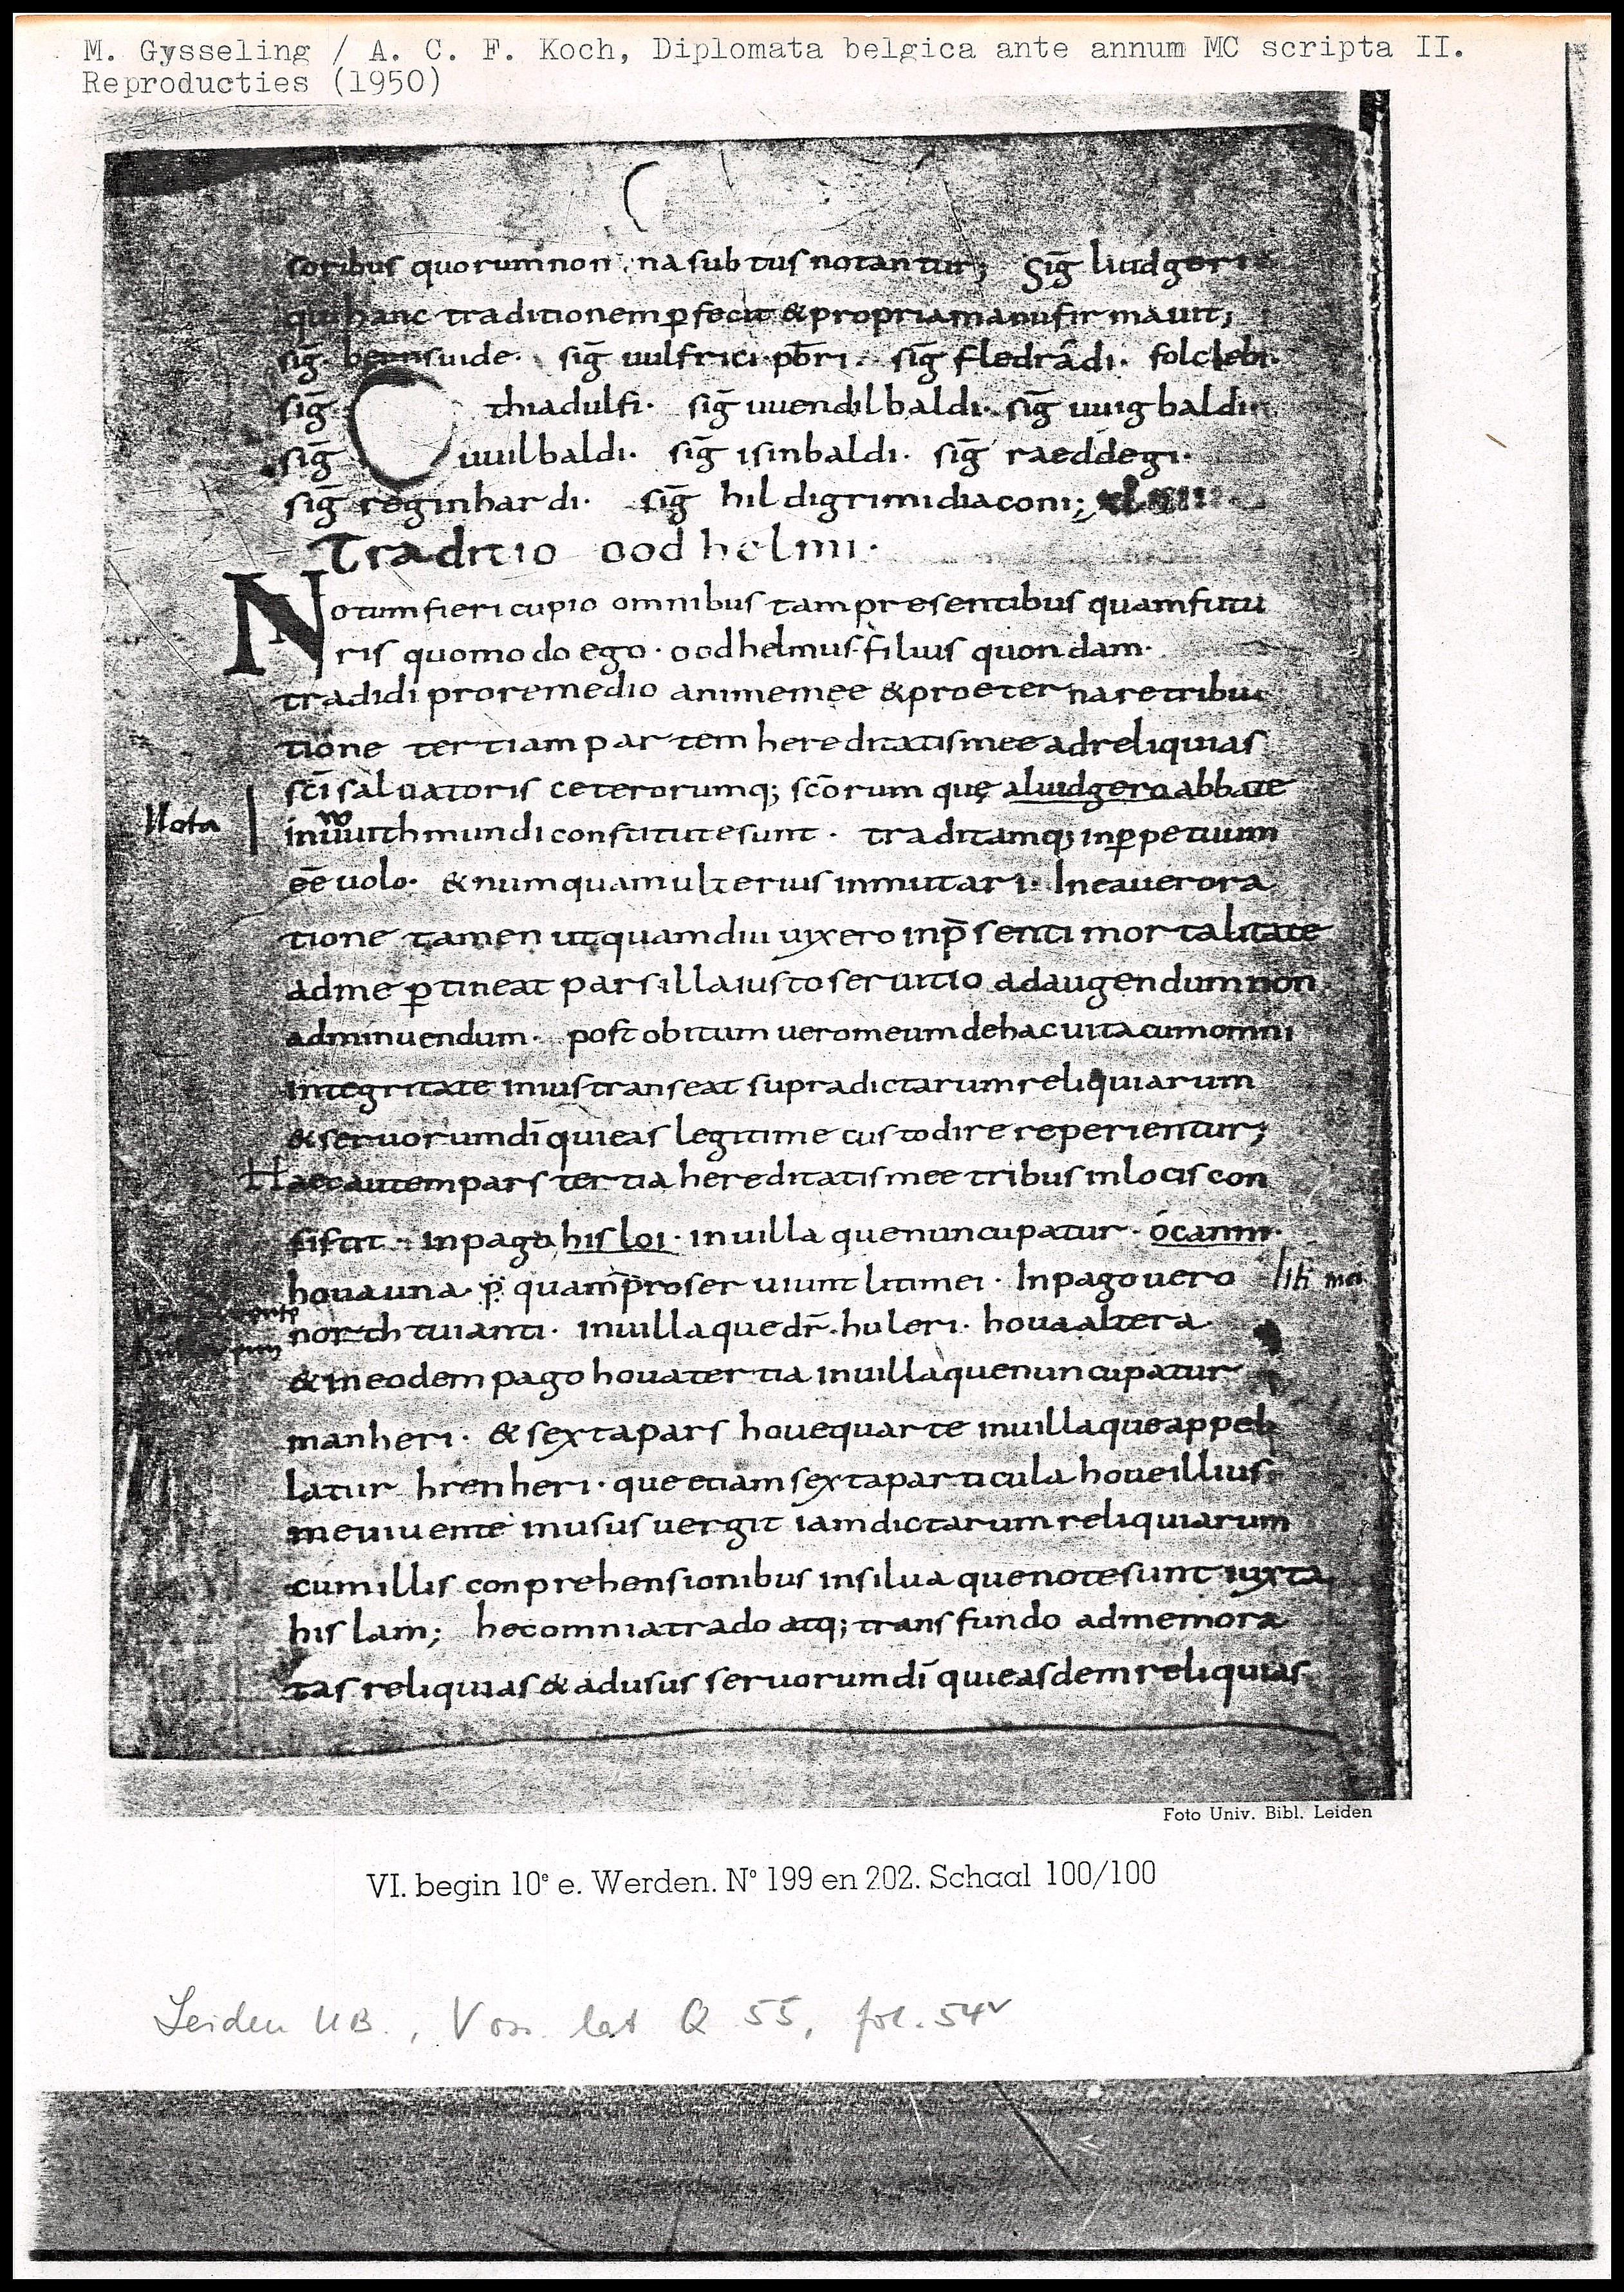 M. Gysseling / A. C. F. Koch, Diplomata belgica ante annum MC scripta II.
Reproducties (1950)
soribus quorum non na subtus notantur; Sig̅ liudgeri
qui hanc traditionem ꝑfecit & propria manu firmauit;
sig̅ bernsuide. sig̅ uulfrici pb̅ri. sig̅ fledrâdi. folclebi.
sig̅ thiadulfi. sig̅ uuendilbaldi. sig̅ uuigbaldi.
sig̅ uuilbaldi. sig̅ isinbaldi. sig̅ raeddegi.
sig̅ reginhardi. sig̅ hildigrimi diaconi;
Traditio oodhelmi.
Notum fieri cupio omnibus tam presentibus quam futu
ris quomodo ego. oodhelmus filius quondam.
tradidi pro remedio anime mee & pro eterna retribu
tione tertiam partem hereditatis mee ad reliquias
sc̅i saluatoris ceterorumq; sc̅orum quę a liudgero abbate
Nota
in uuithmundi constitute sunt. traditamq; in ꝑpetuum
ee̅ uolo. & numquam ulterius inmutari. In ea uero ra
tione tamen ut quamdiu uixero in p̅senti mortalitate
ad me ꝑtineat pars illa iusto seruitio ad augendum non
ad minuendum. post obitum uero meum de hac uita cum omni
integritate in ius transeat supradictarum reliquiarum
& seruorum di̅ qui eas legitime custodire reperientur;
Haec autem pars tertia hereditatis mee tribus in locis con
sistit. in pago hisloi. in uilla que nuncupatur. ócanni.
houa una. ꝑ quam proseruiunt liti mei. In pago uero
liti mei
northtuianti. in uilla que dr̅. huleri. houa altera.
& in eodem pago houa tertia in uilla que nuncupatur
manheri. & sexta pars houe quarte in uilla que appel
latur hrenheri. que etiam sexta particula houe illius.
me uiuente in usus uergit iam dictarum reliquiarum
cum illis conprehensionibus in silua que note sunt iuxta
hislam; hec omnia trado atq; transfundo ad memora
tas reliquias & ad usus seruorum di̅ qui easdem reliquias
Foto Univ. Bibl. Leiden
VI. begin 10ᵉ e. Werden. Nº 199 en 202. Schaal 100/100
Leiden UB., Voss. lat Q 55, fol. 54ᵛ